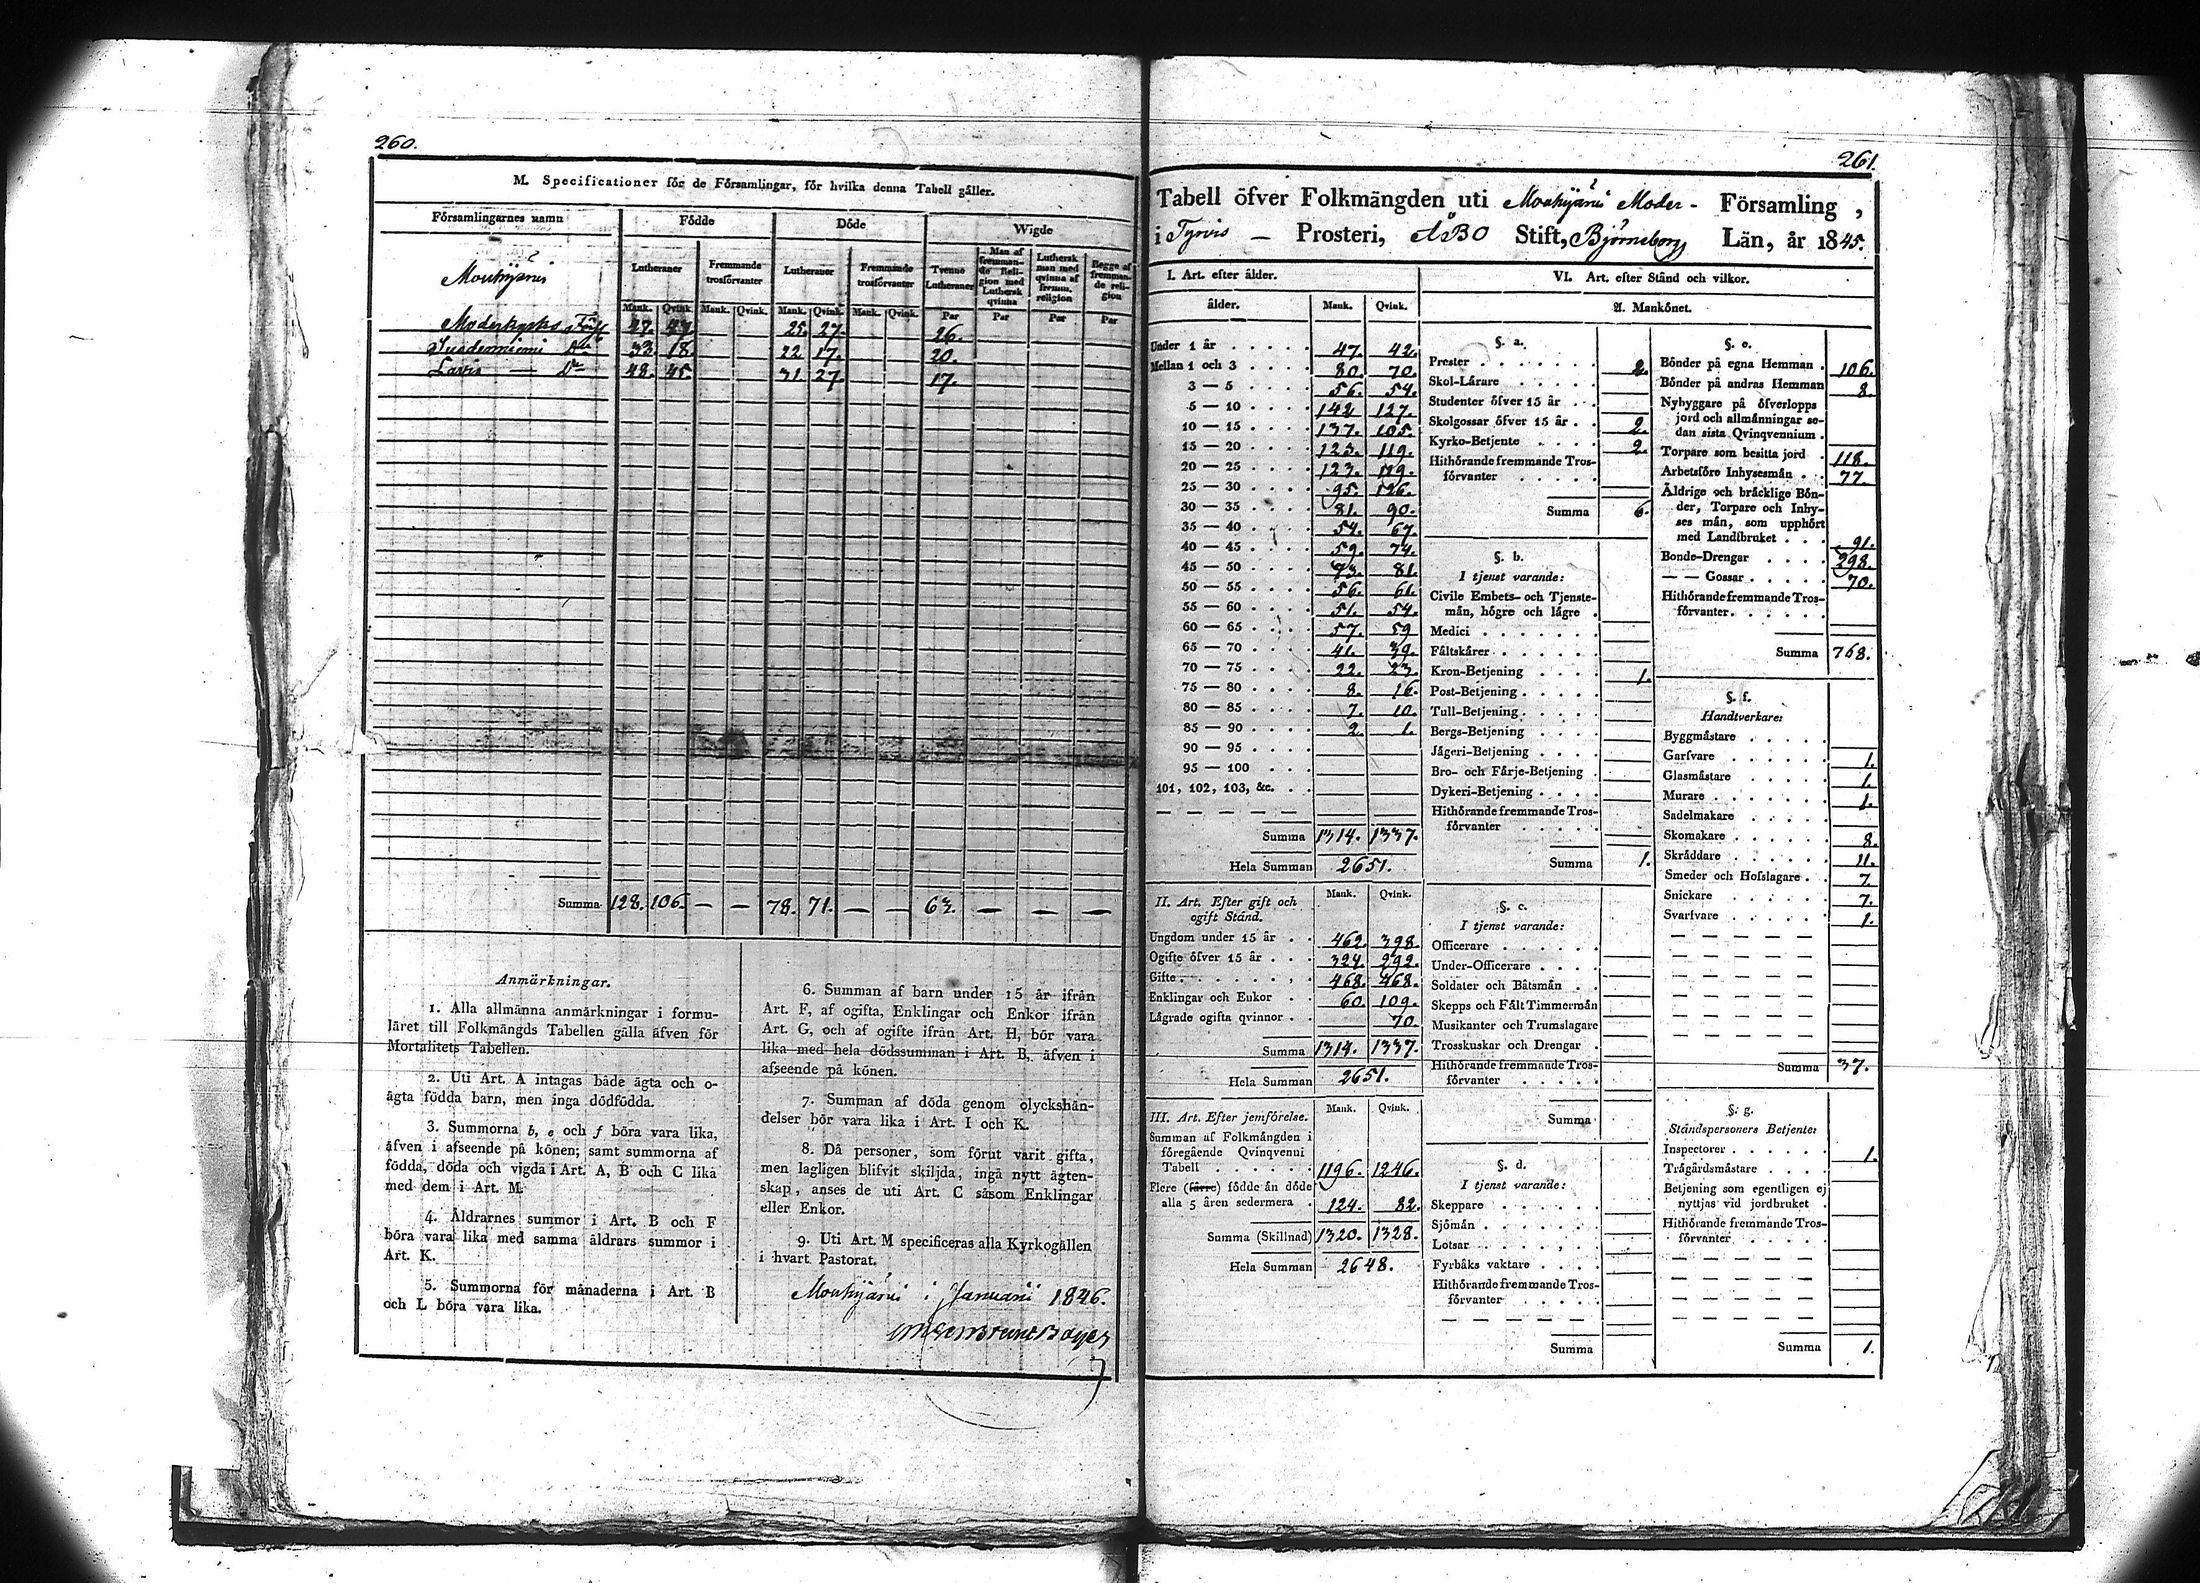 260.
M. Specificationer för de Församlingar, för hvilka denna Tabell gäller.
Församlingarnes namn Födde Döde Wigde
Lutheraner Fremmande trosförvanter Lutheraner Fremmande trosförvanter Tvenne Lutheraner Man af fremmande Religion med Luthersk qvinna Luthersk man med qvinna af fremm. religion Begge af fremmande religion
Mouhijärvi
Mank. Qvink. Mank. Qvink. Mank. Qvink. Mank. Qvink. Par Par Par Par
Moderkyrko 47. 43. 25. 27. 26.
Suodenniemi Do 33. 18. 22 17. 20.
Lavia — Do 48. 45. 31. 27. 17.
Summa 128. 106. — — 78. 71. — — 63. — — —
Anmärkningar.
1. Alla allmänna anmärkningar i formu-
läret till Folkmängds Tabellen gälla äfven för
Mortalitets Tabellen.
2. Uti Art. A intagas både ägta och o-
ägta födda barn, men inga dödfödda.
3. Summorna b, e och f böra vara lika,
äfven i afseende på könen; samt summorna af
födda, döda och vigda i Art. A, B och C lika
med dem i Art. M.
4. Åldrarnes summor i Art. B och F
böra vara lika med samma åldrars summor i
Art. K.
5. Summorna för månaderna i Art. B
och L böra vara lika.
6. Summan af barn under 15 år ifrån
Art. F, af ogifta, Enklingar och Enkor ifrån
Art. G, och af ogifte ifrån Art. H, bör vara
lika med hela dödssumman i Art. B, äfven i
afseende på könen.
7. Summan af döda genom olyckshän-
delser bör vara lika i Art. I och K.
8. Då personer, som förut varit gifta,
men lagligen blifvit skiljda, ingå nytt ägten-
skap, anses de uti Art. C såsom Enklingar
eller Enkor.
9. Uti Art. M specificeras alla Kyrkogällen
i hvart Pastorat.
Mouhijärvi i Januarii 1846.
261.
Tabell öfver Folkmängden uti Mouhijärvi Moder- Församling,
i Tyrvis — Prosteri, ÅBO Stift, Björneborg Län, år 1845.
I. Art. efter ålder.
ålder. Mank. Qvink.
Under 1 år 47. 42.
Mellan 1 och 3 80. 70.
3 — 5 56. 54.
5 — 10 142 127.
10 — 15 137. 105.
15 — 20 123. 119.
20 — 25 123. 129.
25 — 30 95. 126.
30 — 35 81. 90.
35 — 40 54. 67.
40 — 45 59. 74.
45 — 50 73. 81.
50 — 55 56. 61.
55 — 60 51. 54.
60 — 65 57. 59
65 — 70 41. 39.
70 — 75 22. 23
75 — 80 8. 16.
80 — 85 7. 10.
85 — 90 2. 1.
90 — 95
95 — 100
101, 102, 103, &c.
Summa 1314. 1337.
Hela Summan 2651.
II. Art. Efter gift och ogift Stånd. Mank. Qvink.
Ungdom under 15 år 462. 398.
Ogifte öfver 15 år 324. 292.
Gifte 468. 468.
Enklingar och Enkor 60. 109.
Lägrade ogifta qvinnor 70.
Summa 1314. 1337.
Hela Summan 2651.
III. Art. Efter jemförelse. Mank. Qvink.
Summan af Folkmängden i
föregående Qvinqvenni
Tabell 1196. 1246.
Flere (färre) födde än döde
alla 5 åren sedermera 124. 82.
Summa (Skillnad) 1320. 1328.
Hela Summan 2648.
VI. Art. efter Stånd och vilkor.
A. Mankönet.
§. a.
Prester 2.
Skol-Lärare
Studenter öfver 15 år
Skolgossar öfver 15 år 2.
Kyrko-Betjente 2.
Hithörande fremmande Tros-
förvanter
Summa 6.
§. b.
I tjenst varande:
Civile Embets- och Tjenste-
män, högre och lägre
Medici
Fältskärer
Kron-Betjening 1.
Post-Betjening
Tull-Betjening
Bergs-Betjening
Jägeri-Betjening
Bro- och Färje-Betjening
Dykeri-Betjening
Hithörande fremmande Tros-
förvanter
Summa 1.
§. c.
I tjenst varande:
Officerare
Under-Officerare
Soldater och Båtsmän
Skepps och Fält Timmermän
Musikanter och Trumslagare
Trosskuskar och Drengar
Hithörande fremmande Tros-
förvanter
Summa
§. d.
I tjenst varande:
Skeppare
Sjömän
Lotsar
Fyrbåks vaktare
Hithörande fremmande Tros-
förvanter
Summa
§. e.
Bönder på egna Hemman 106.
Bönder på andras Hemman 8.
Nybyggare på öfverlopps
jord och allmänningar se-
dan sista Qvinqvennium
Torpare som besitta jord 118.
Arbetsföre Inhysesmän 77.
Äldrige och bräcklige Bön-
der, Torpare och Inhy-
ses män, som upphört
med Landtbruket 91.
Bonde-Drengar 298.
— — Gossar 70.
Hithörande fremmande Tros-
förvanter
Summa 768.
§. f.
Handtverkare:
Byggmästare
Garfvare 1.
Glasmästare 1.
Murare 1.
Sadelmakare
Skomakare 8.
Skräddare 11.
Smeder och Hofslagare 7.
Snickare 7.
Svarfvare 1.
Summa 37.
§. g.
Ståndspersoners Betjente:
Inspectorer 1.
Trägårdsmästare
Betjening som egentligen ej
nyttjas vid jordbruket
Hithörande fremmande Tros-
förvanter
Summa 1.